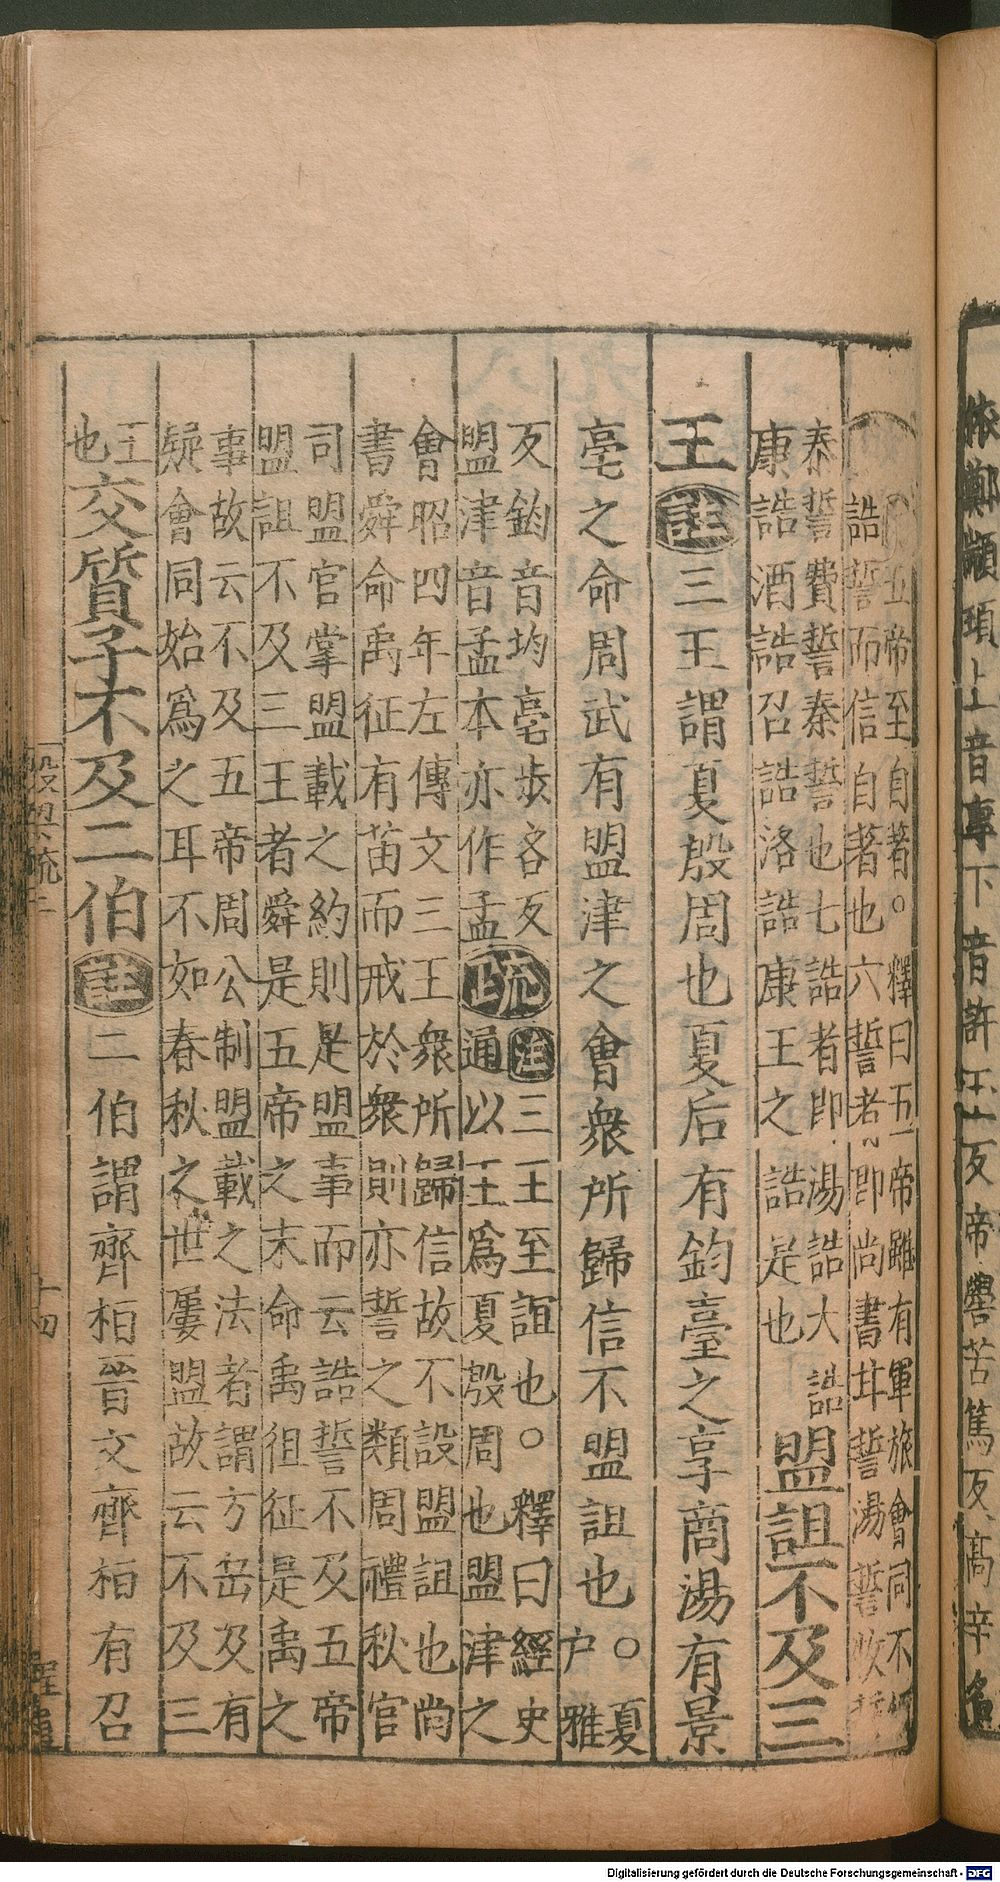 五帝至自著。釋曰五帝雖有軍旅會同不
誥誓而信自著也六誓者即尚書甘誓湯誓牧誓
泰誓費誓秦誓也七誥者即湯誥大誥
康誥酒誥召誥洛誥康王之誥是也
盟詛不及三
王註三王謂夏殷周也夏后有鈞臺之享商湯有景
亳之命周武有盟津之會衆所歸信不盟詛也。夏
户雅
反鈞音均亳步各反
盟津音孟本亦作孟
疏注三王至詛也。釋曰經史
通以三王爲夏殷周也盟津之
會昭四年左傳文三王衆所歸信故不設盟詛也尚
書舜命禹征有苗而戒於衆則亦誓之類周禮秋官
司盟官掌盟載之約則是盟事而云誥誓不及五帝
盟詛不及三王者舜是五帝之末命禹徂征是禹之
事故云不及五帝周公制盟載之法者謂方岳及有
疑會同始爲之耳不如春秋之世屢盟故云不及三
王
也
交質子不及二伯註二伯謂齊桓晉文齊桓有召
十四
依鄭顓頊上音專下音許玉反帝嚳苦篤反高辛
Digitalisierung gefördert durch die Deutsche Forschungsgemeinschaft - DFG